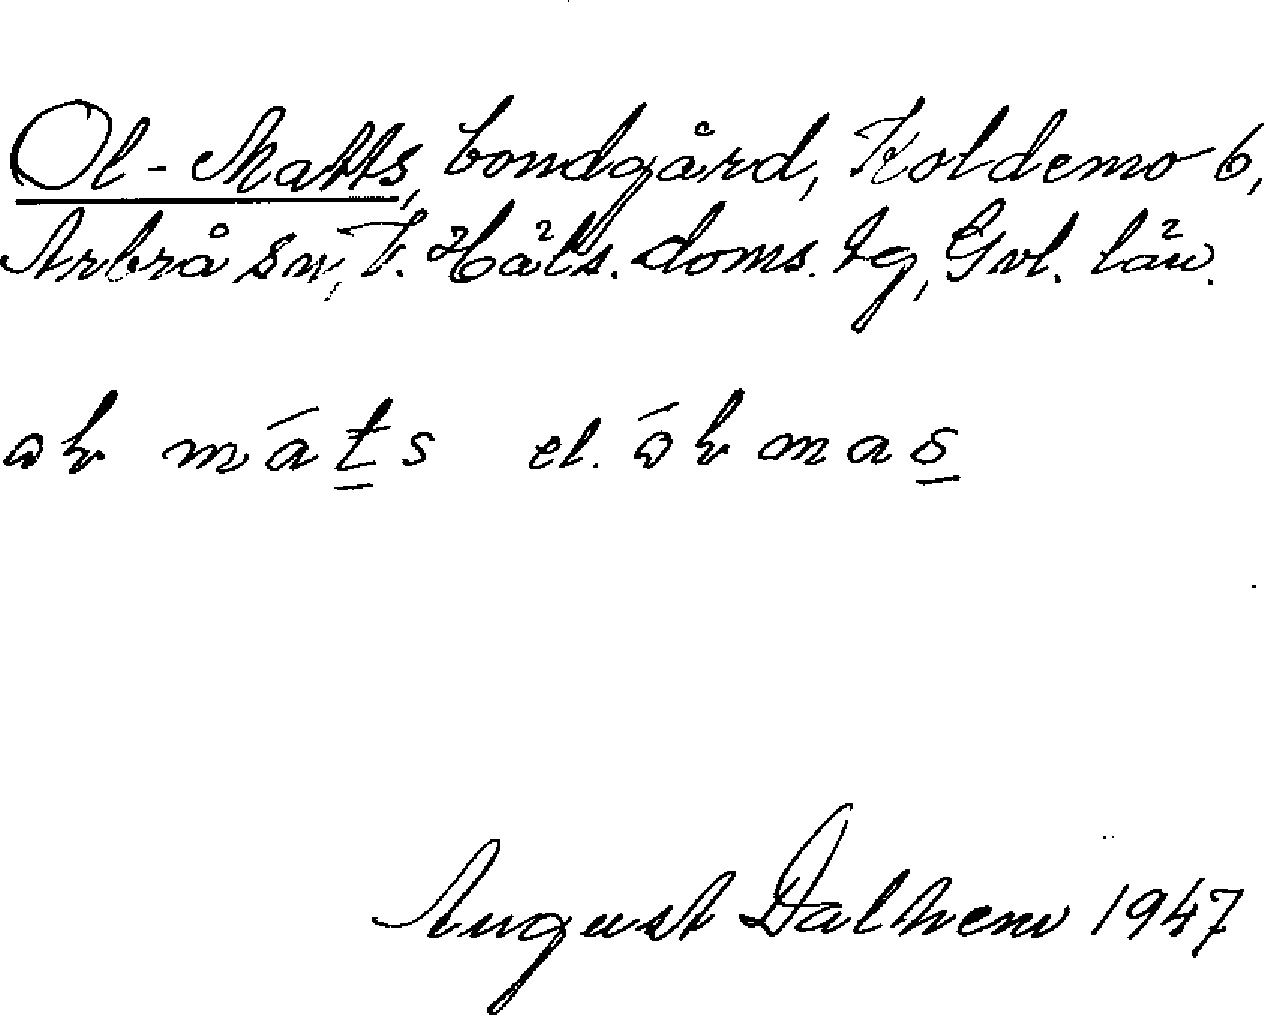 Ol-Matts, bondgård, Koldemo 6,
Arbrå sn, V. Häls. doms. tg, Gvl. län.
máts el. mas
August Dalhem 1947